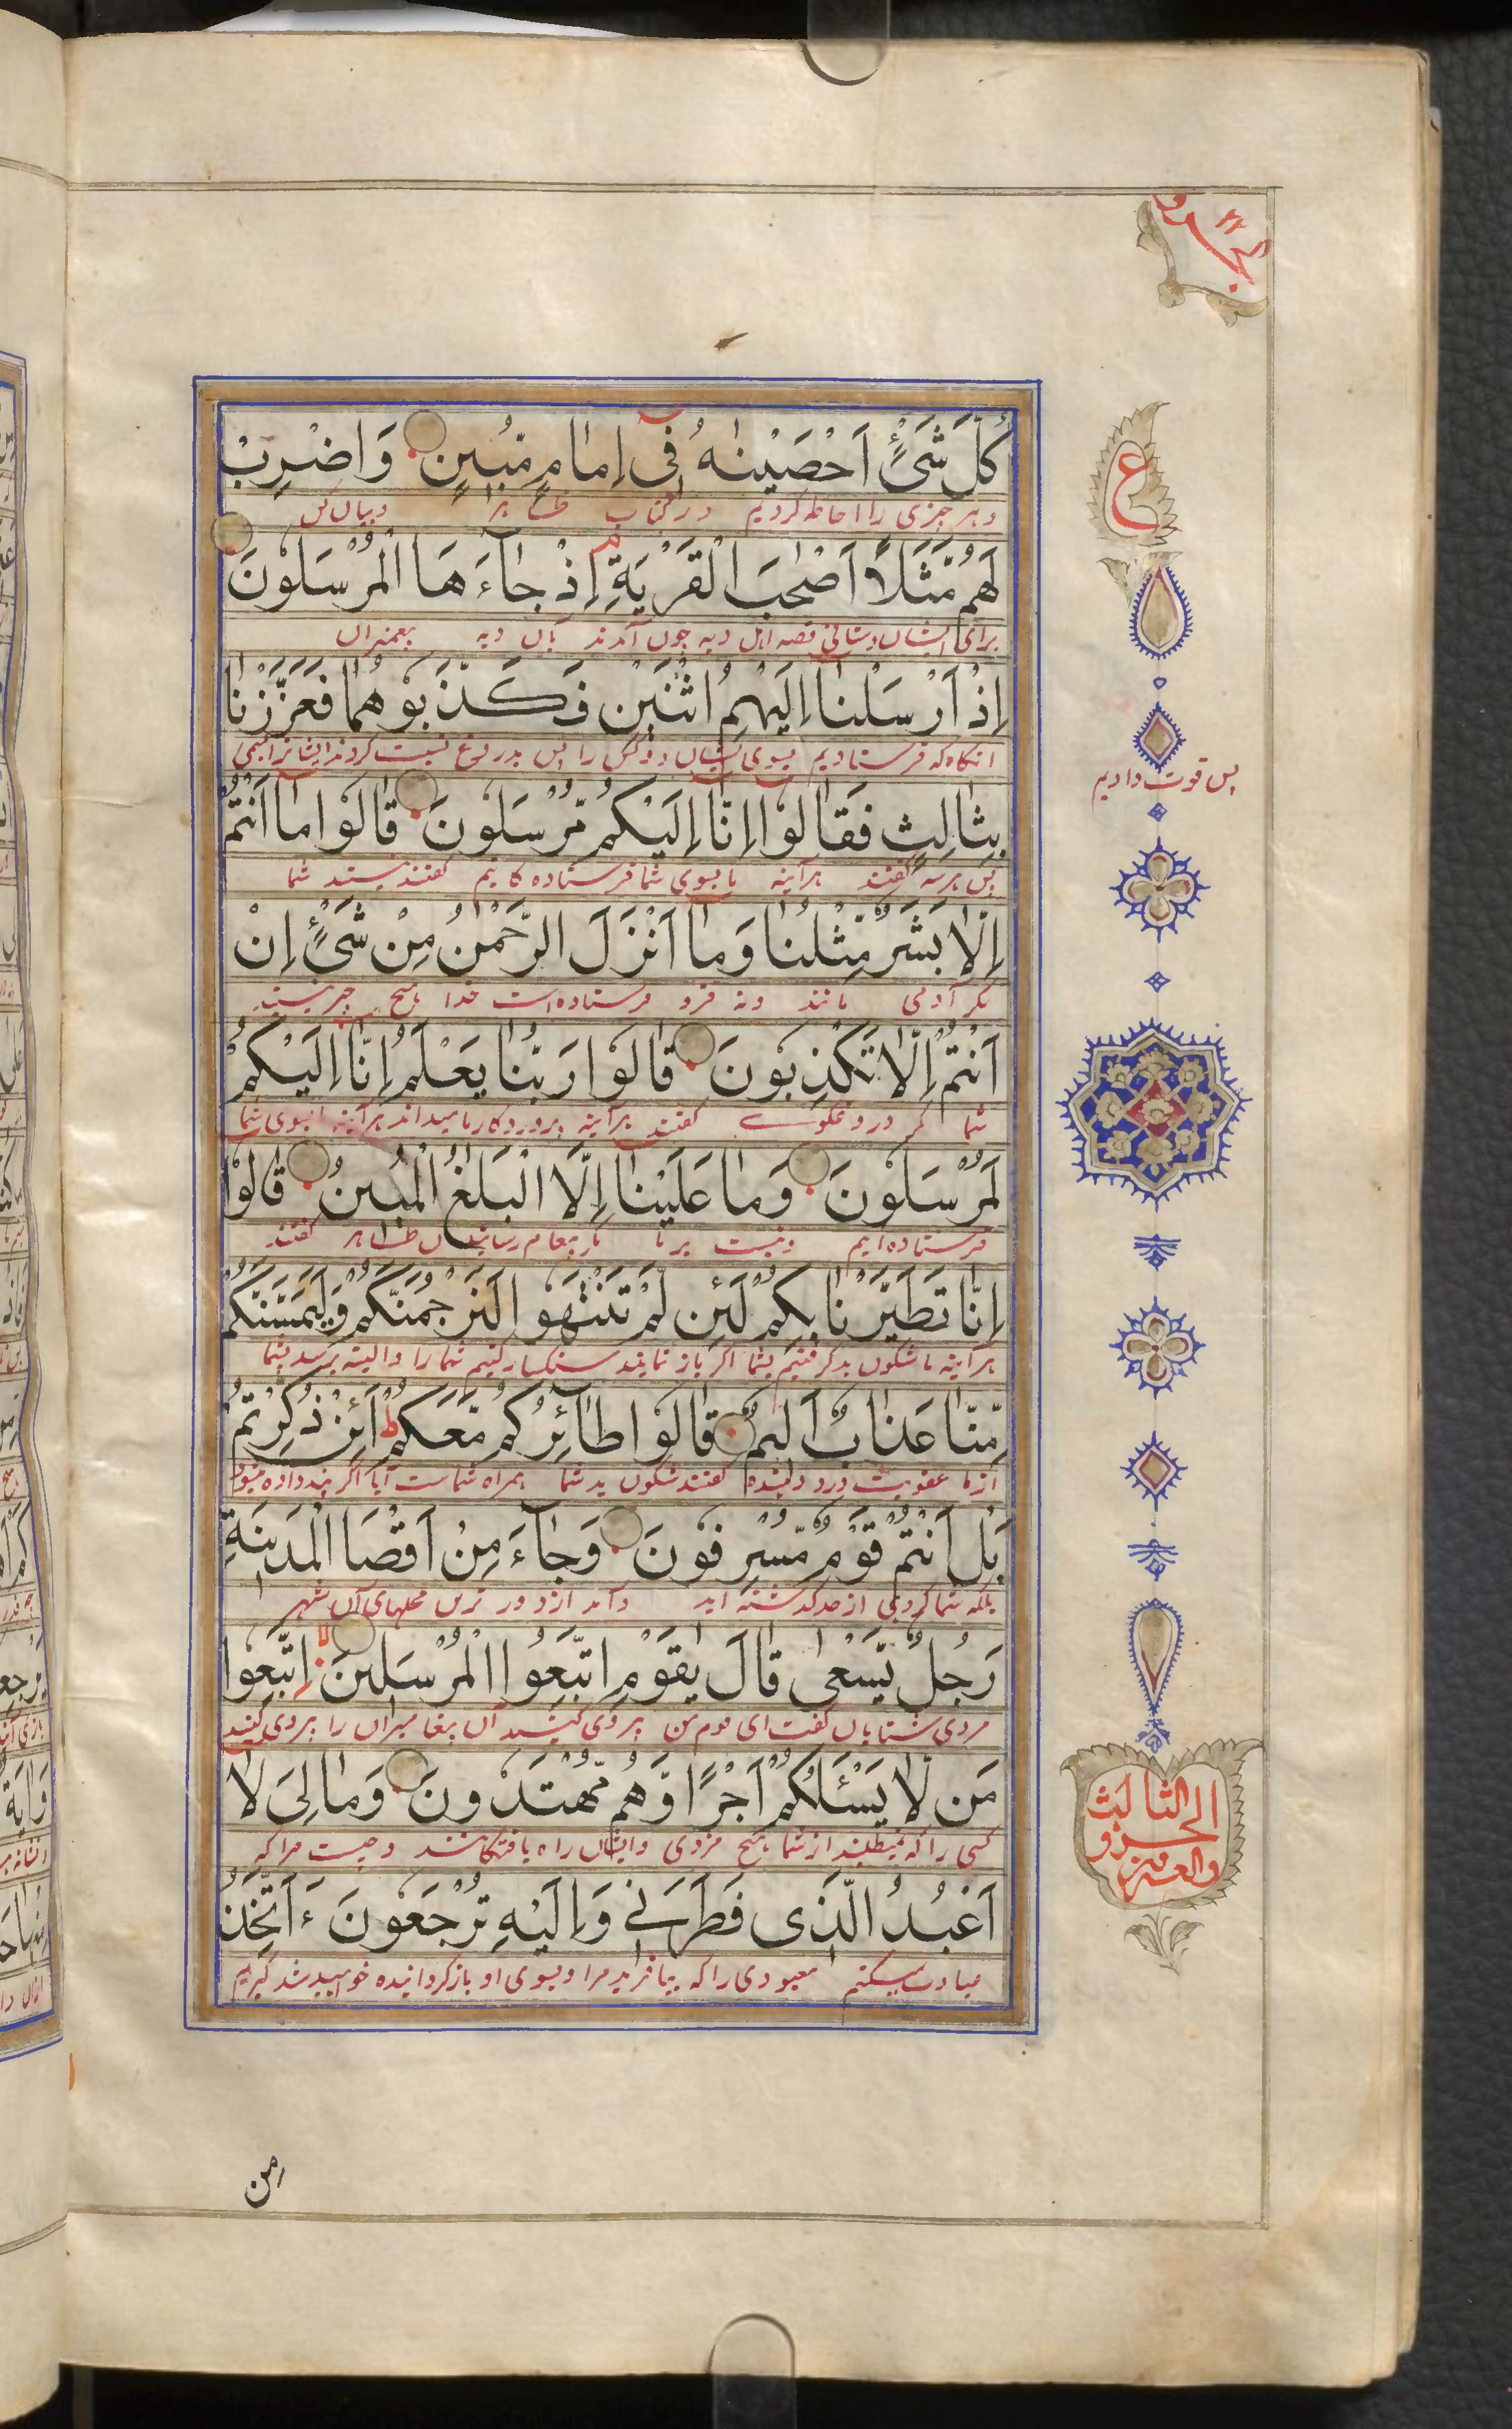 كُلَّ شَیْءٍ اَحْصَیْنٰهُ فِی اِمَامٍ مُّبِیْنٍ وَاضْرِبْ
و هر چیزی را احاطه کردیم در کتاب ظاهر و بیان کن
لَهُمْ مَّثَلًا اَصْحٰبَ الْقَرْیَةِ اِذْ جَآءَهَا الْمُرْسَلُونَ
برای ایشان داستانی قصه اهل دیه چون آمدند بآن دیه پیغمبران
اِذْ اَرْسَلْنَا اِلَیْهِمُ اثْنَیْنِ فَكَذَّبُوهُمَا فَعَزَّزْنَا
آنگاه که فرستادیم بسوی ایشان دو کس را پس بدروغ نسبت کردند ایشانرا
پس قوت دادیم
بِثَالِثٍ فَقَالُوا اِنَّا اِلَیْكُمْ مُّرْسَلُونَ قَالُوا مَا اَنْتُمْ
پس هرسه گفتند هرآینه ما بسوی شما فرستاده کانیم گفتند نیستید شما
اِلَّا بَشَرٌ مِّثْلُنَا وَمَا اَنْزَلَ الرَّحْمٰنُ مِنْ شَیْءٍ اِنْ
مگر آدمی مانند و نه فرو فرستاده است خدا هیچ چیز نیستید
اَنْتُمْ اِلَّا تَكْذِبُونَ قَالُوا رَبُّنَا یَعْلَمُ اِنَّا اِلَیْكُمْ
شما مگر دروغگوی گفتند هرآینه پروردکار ما میداند هرآینه ما بسوی شما
لَمُرْسَلُونَ وَمَا عَلَیْنَا اِلَّا الْبَلٰغُ الْمُبِیْنُ قَالُوا
فرستاده ایم و نیست بر ما مگر پیغام رسانیدن ظاهر گفتند
اِنَّا تَطَیَّرْنَا بِكُمْ لَئِنْ لَّمْ تَنْتَهُوا لَنَرْجُمَنَّكُمْ وَلَیَمَسَّنَّكُمْ
هرآینه ما شکون بد گرفتیم بشما اگر باز نمایید سنکسار کنیم شما را و البته برسد بشما
مِّنَّا عَذَابٌ اَلِیْمٌ قَالُوا طَائِرُكُمْ مَّعَكُمْ ط اَئِنْ ذُكِّرْتُمْ
از ما عقوبت درد دهنده گفتند شکون بد شما همراه شماست آیا اگر پند داده میشود
بَلْ اَنْتُمْ قَوْمٌ مُّسْرِفُونَ وَجَآءَ مِنْ اَقْصَا الْمَدِیْنَةِ
بلکه شما گروهی از حد گذشته اید و آمد از دور ترین محلهای آن شهر
رَجُلٌ یَّسْعٰی قَالَ یٰقَوْمِ اتَّبِعُوا الْمُرْسَلِیْنَ لا اتَّبِعُوا
مردی شتابان گفت ای قوم من پیروی کنید آن پیغامبران را پیروی کنید
مَنْ لَّا یَسْئَلُكُمْ اَجْرًا وَّهُمْ مُّهْتَدُونَ وَمَا لِیَ لَا
کسی را که نمیطلبد از شما هیچ مزدی و ایشان راه یافتکانند و چیست مرا که
اَعْبُدُ الَّذِی فَطَرَنِی وَاِلَیْهِ تُرْجَعُونَ ءَاَتَّخِذُ
عبادت میکنم معبودی را که بیافرید مرا و بسوی او باز گردانیده خواهید شد گیرم
مِن
ع
الجزو الثالث والعشرين